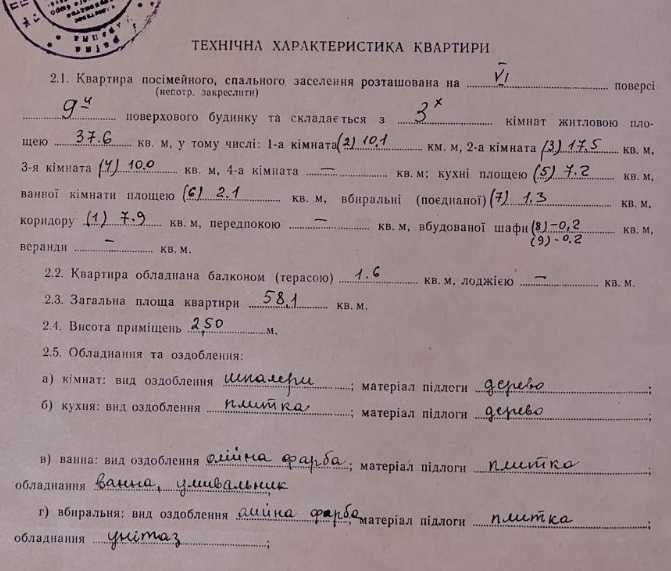 ТЕХНІЧНА ХАРАКТЕРИСТИКА КВАРТИРИ
2.1. Квартира посімейного, спального заселення розташована на VI поверсі
(непотр. закреслити)
9-ч поверхового будинку та складається з 3х кімнат житловою пло-
щею 37.6 кв. м, у тому числі: 1-а кімната (2) 10,1 км. м, 2-а кімната (3) 17,5 кв. м,
3-я кімната (4) 10.0 кв. м, 4-а кімната — кв. м; кухні площею (5) 7.2 кв. м,
ванної кімнати площею (6) 2.1 кв. м, вбиральні (поєднаної) (7) 1.3 кв. м,
коридору (1) 7.9 кв. м, передпокою — кв. м, вбудованої шафи (8)-0,2 кв. м,
(9)-0.2
веранди — кв. м.
2.2. Квартира обладнана балконом (терасою) 1.6 кв. м, лоджією — кв. м.
2.3. Загальна площа квартири 58,1 кв. м.
2.4. Висота приміщень 2,50 м.
2.5. Обладнання та оздоблення:
а) кімнат: вид оздоблення шпалери; матеріал підлоги дерево;
б) кухня: вид оздоблення плитка; матеріал підлоги дерево;
в) ванна: вид оздоблення олійна фарба; матеріал підлоги плитка;
обладнання ванна, умивальник;
г) вбиральня: вид оздоблення олійна фарба, матеріал підлоги плитка;
обладнання унітаз;